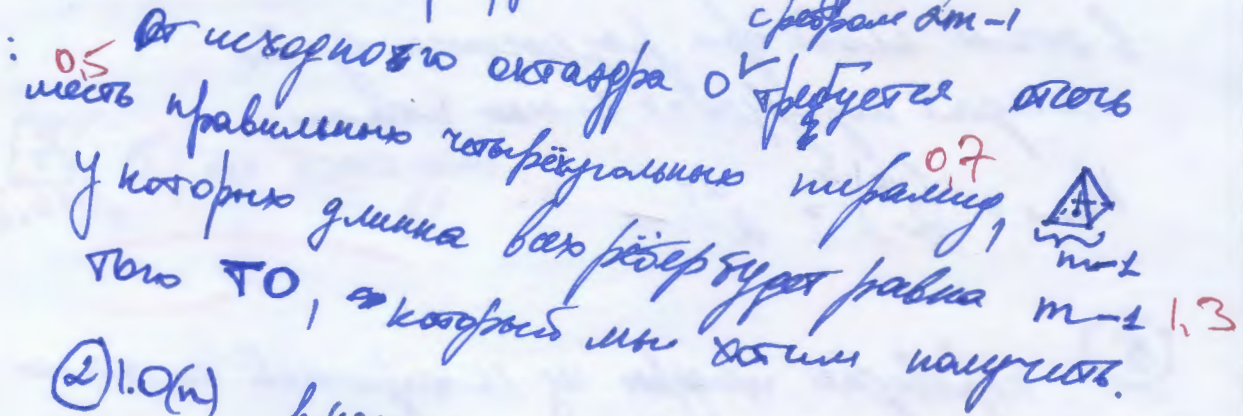 с ребром 2m-1
От исходного октаэдра O требуется отсечь
0,5
шесть правильных четырёхугольных пирамид,
0,7
у которых длинна всех рёбер будет равна m-1
m-1
1,3
того TO, который мы хотим получить.
② 1.O(n)